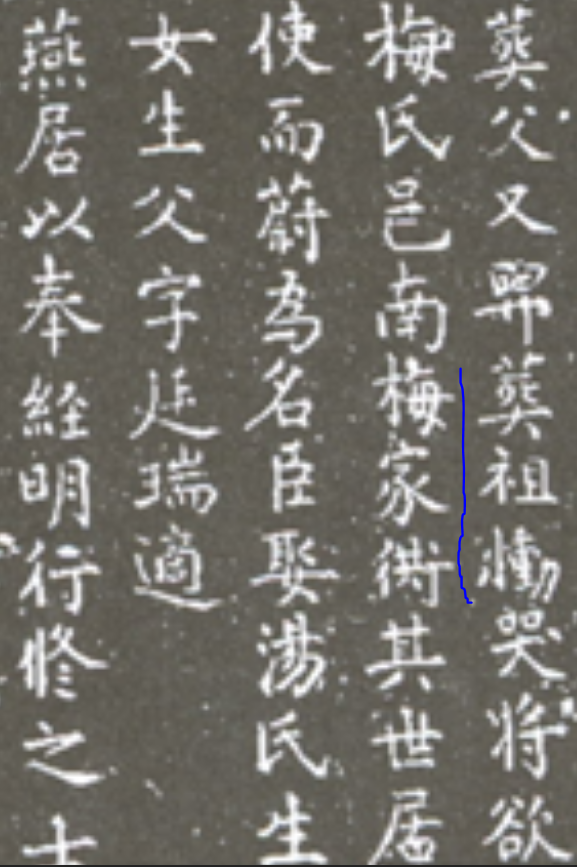 葬父又葬祖慟哭将欲
梅氏邑南梅家衖其世居
使而蔚為名臣娶湯氏生
女生父字廷瑞適
燕居以奉經明行修之士